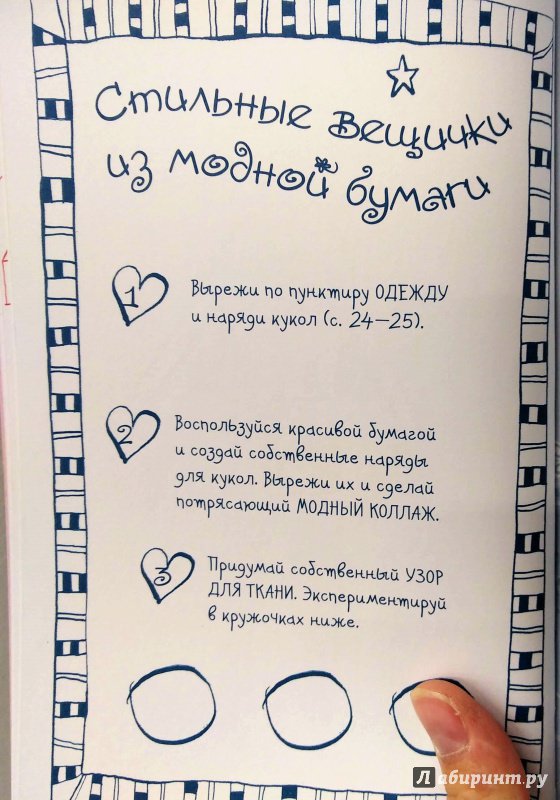 Стильные вещички
из модной бумаги
1
Вырежи по пунктиру ОДЕЖДУ
и наряди кукол (с. 24—25).
2
Воспользуйся красивой бумагой
и создай собственные наряды
для кукол. Вырежи их и сделай
потрясающий МОДНЫЙ КОЛЛАЖ.
3
Придумай собственный УЗОР
ДЛЯ ТКАНИ. Экспериментируй
в кружочках ниже.
Лабиринт.ру